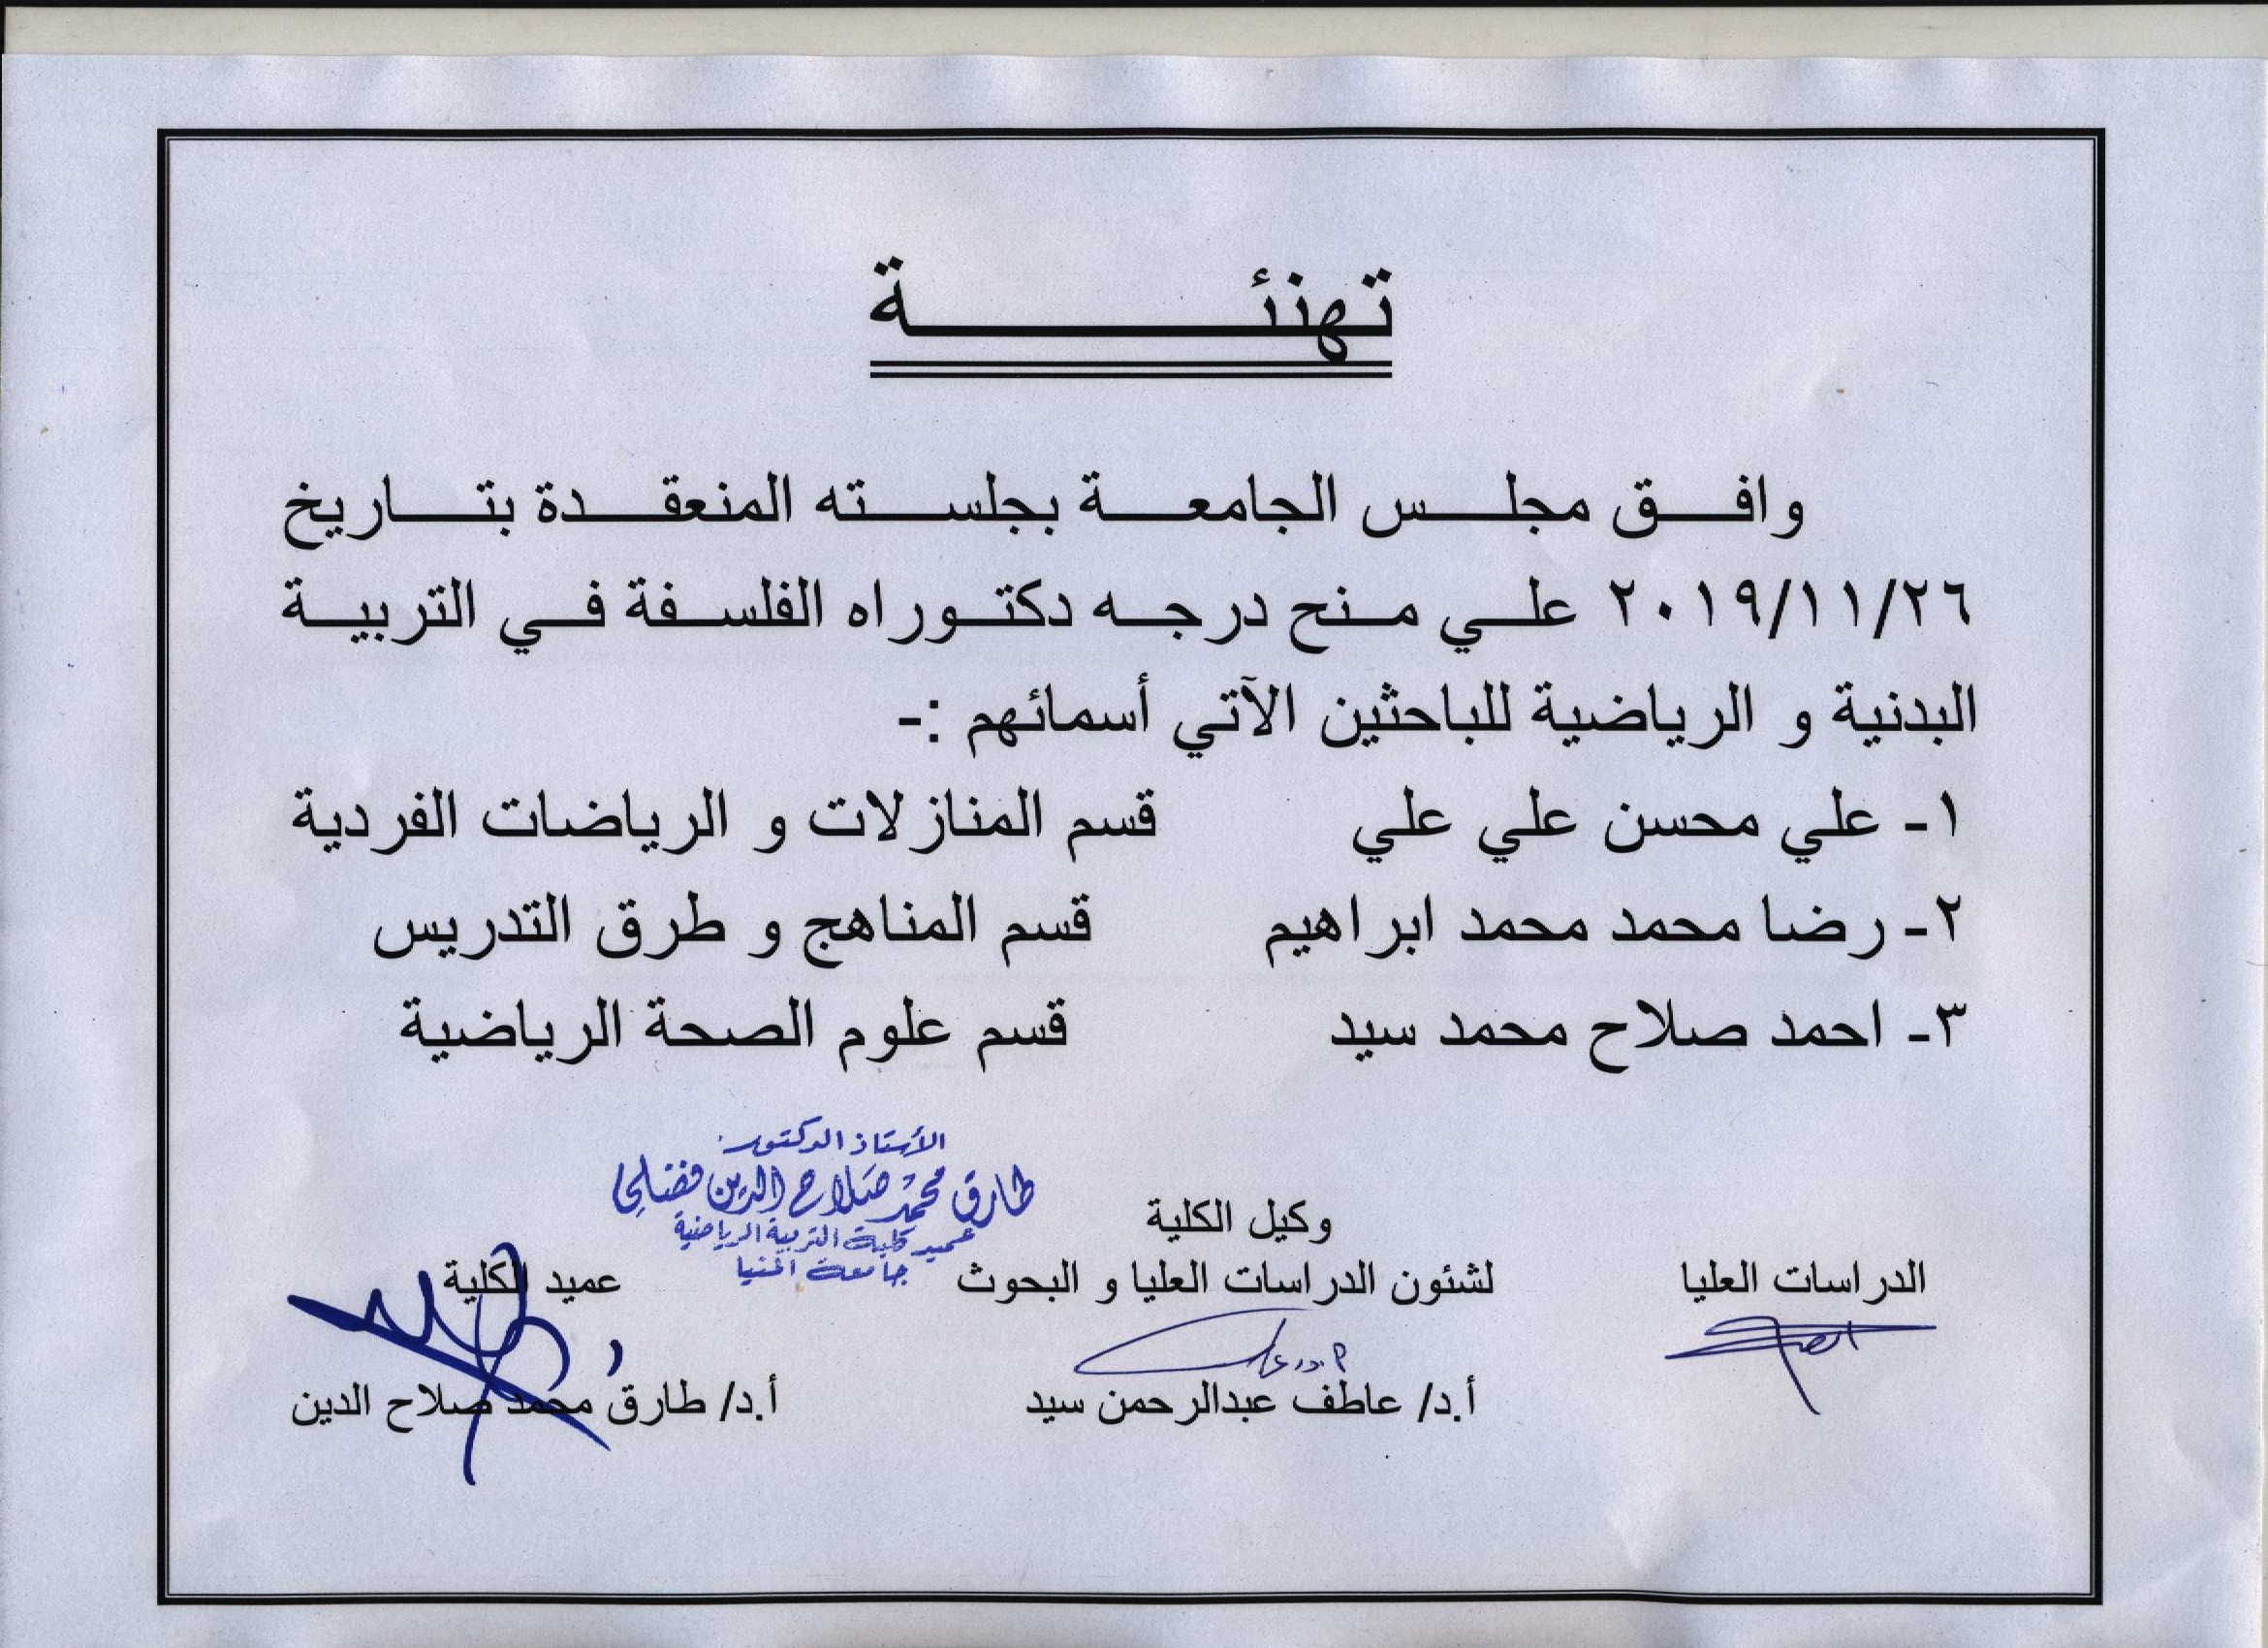 تهنئة
وافق مجلس الجامعة بجلسته المنعقدة بتاريخ
٢٠١٩/١١/٢٦ علي منح درجه دكتوراه الفلسفة في التربية
البدنية و الرياضية للباحثين الآتي أسمائهم :-
١- علي محسن علي علي قسم المنازلات و الرياضات الفردية
٢- رضا محمد محمد ابراهيم قسم المناهج و طرق التدريس
٣- احمد صلاح محمد سيد قسم علوم الصحة الرياضية
الأستاذ الدكتور
طارق محمد صلاح الدين فضلي
عميد كلية التربية الرياضية
جامعة المنيا
وكيل الكلية
الدراسات العليا لشئون الدراسات العليا و البحوث عميد الكلية
أ.د/ عاطف عبدالرحمن سيد أ.د/ طارق محمد صلاح الدين